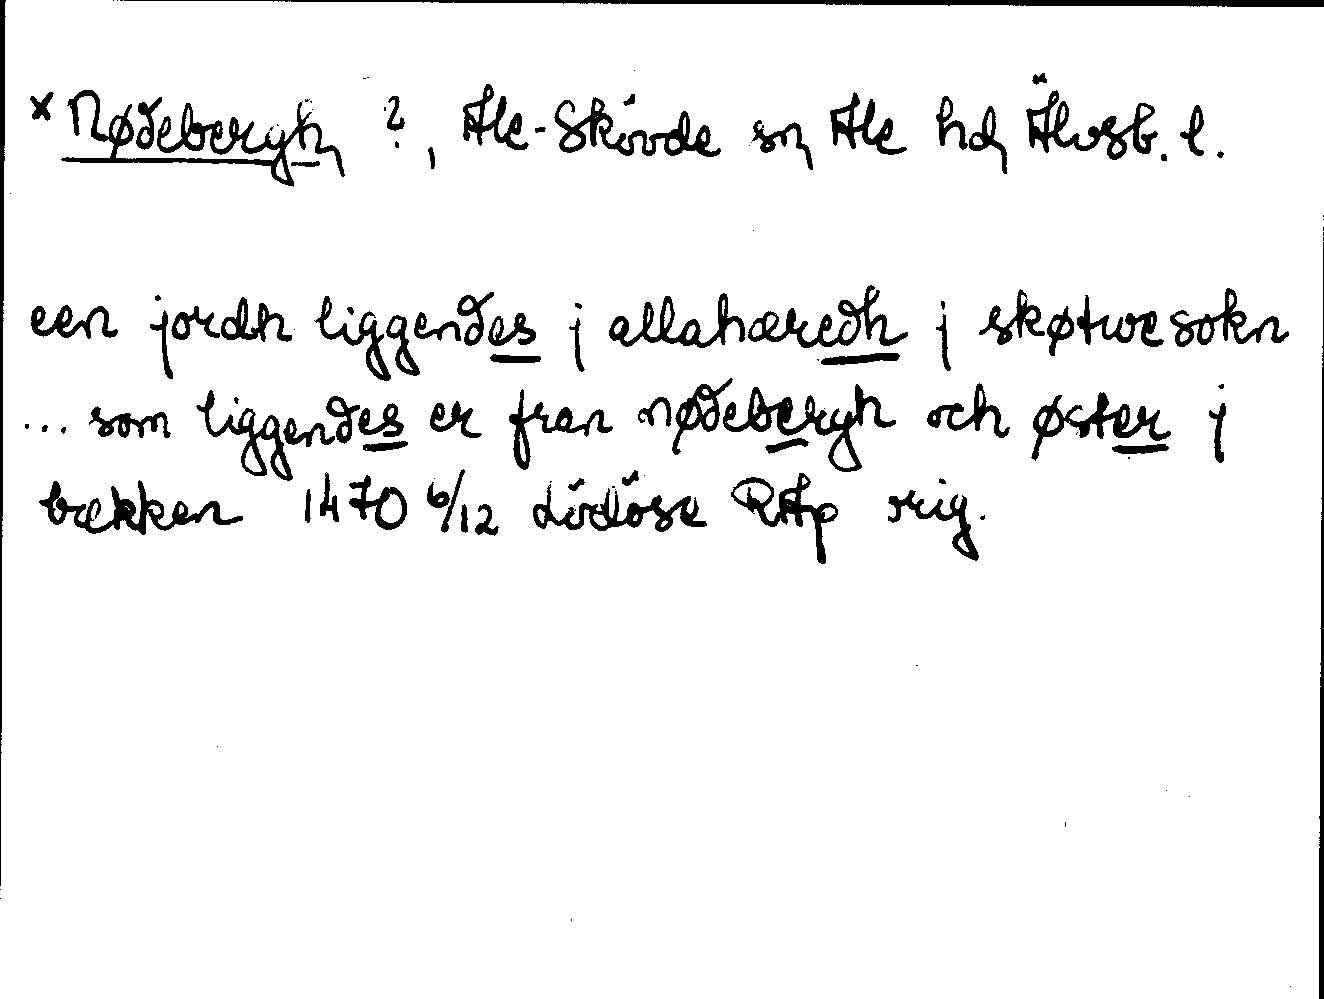 × Nødebergh ?, Ale-Skövde sn Ale hd Älvsb. l.
een jordh liggendes j allahæredh j skøtwe sokn
... som liggendes er fran nødebergh och øster j
bækken 1470 6/12 Lödöse RAp orig.